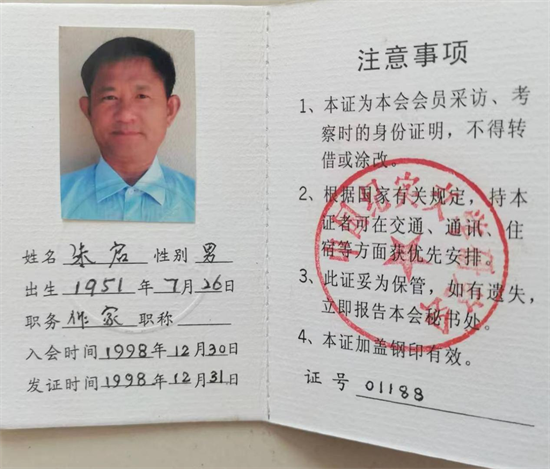 姓名 朱启 性别 男
出生 1951 年 7 月 26 日
职务 作家 职称
入会时间 1998 年 12 月 30 日
发证时间 1998 年 12 月 31 日
注意事项
1、本证为本会会员采访、考
察时的身份证明，不得转
借或涂改。
2、根据国家有关规定，持本
证者可在交通、通讯、住
宿等方面获优先安排。
3、此证妥为保管，如有遗失，
立即报告本会秘书处。
4、本证加盖钢印有效。
证号 01188
中国纪实文学研究会